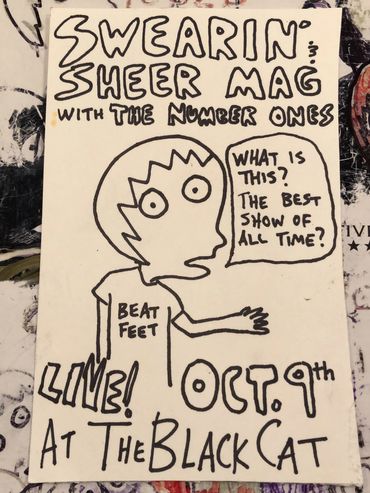 SWEARIN' &
SHEER MAG
WITH THE NUMBER ONES
WHAT IS
THIS?
THE BEST
SHOW OF
ALL TIME?
BEAT
FEET
LIVE! OCT. 9th
AT THE BLACK CAT